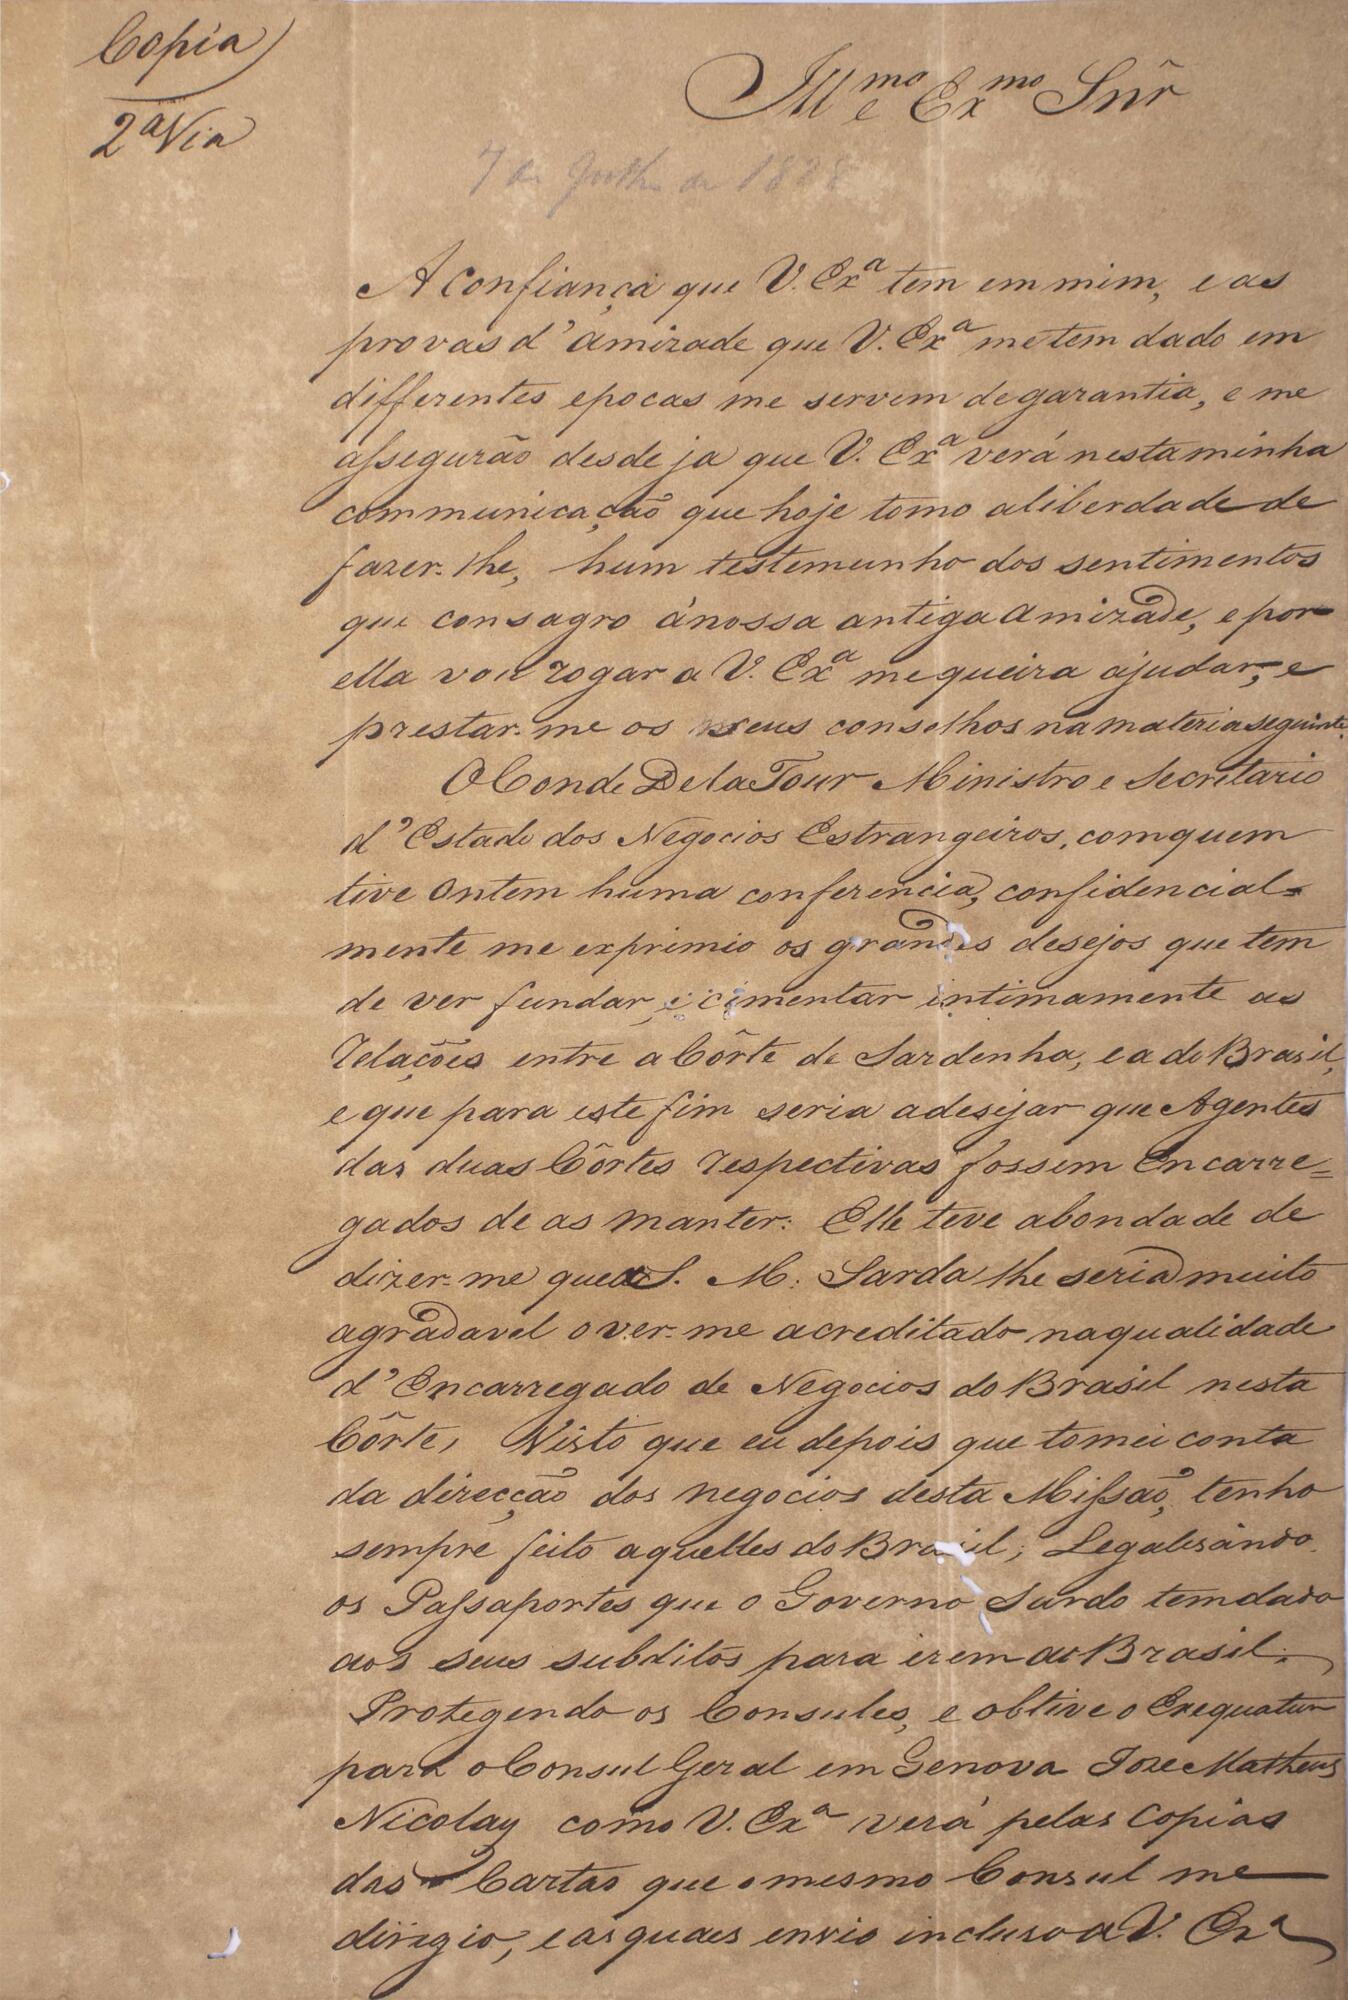 Copia
2ª Via
Illmo e Exmo Snr̃
7 de Julho de 1828
A confiança que V. Exª tem em mim, e as
provas d'amizade que V. Exª me tem dado em
differentes epocas me servem de garantia, e me
assegurão desde ja que V. Exª verá nesta minha
communicação que hoje tomo a liberdade de
fazer-lhe, hum testemunho dos sentimentos
que consagro á nossa antiga amizade, e por
ella vou rogar a V. Exª me queira ajudar, e
prestar-me os seus conselhos na materia seguinte.
O Conde De la Tour Ministro e Secretario
d'Estado dos Negocios Estrangeiros, com quem
tive ontem huma conferencia, confidencial=
mente me exprimio os grandes desejos que tem
de ver fundar, e cimentar intimamente as
relações entre a Côrte de Sardenha, e a do Brasil,
e que para este fim seria a desejar que Agentes
das duas Côrtes respectivas fossem Encarre=
gados de as manter: Elle teve a bondade de
dizer-me que a S. M. Sarda lhe seria muito
agradavel o ver-me acreditado na qualidade
d'Encarregado de Negocios do Brasil nesta
Côrte, Visto que eu depois que tomei conta
da direcção dos negocios desta Missão, tenho
sempre feito aquelles do Brasil; Legalisando
os Passaportes que o Governo Sardo tem dado
aos seus subditos para irem ao Brasil;
Protegendo os Consules, e obtive o Exequatur
para o Consul Geral em Genova Joze Matheus
Nicolay como V. Exª verá pelas copias
das Cartas que o mesmo Consul me
dirigio, e as quaes envio incluso a V. Exª